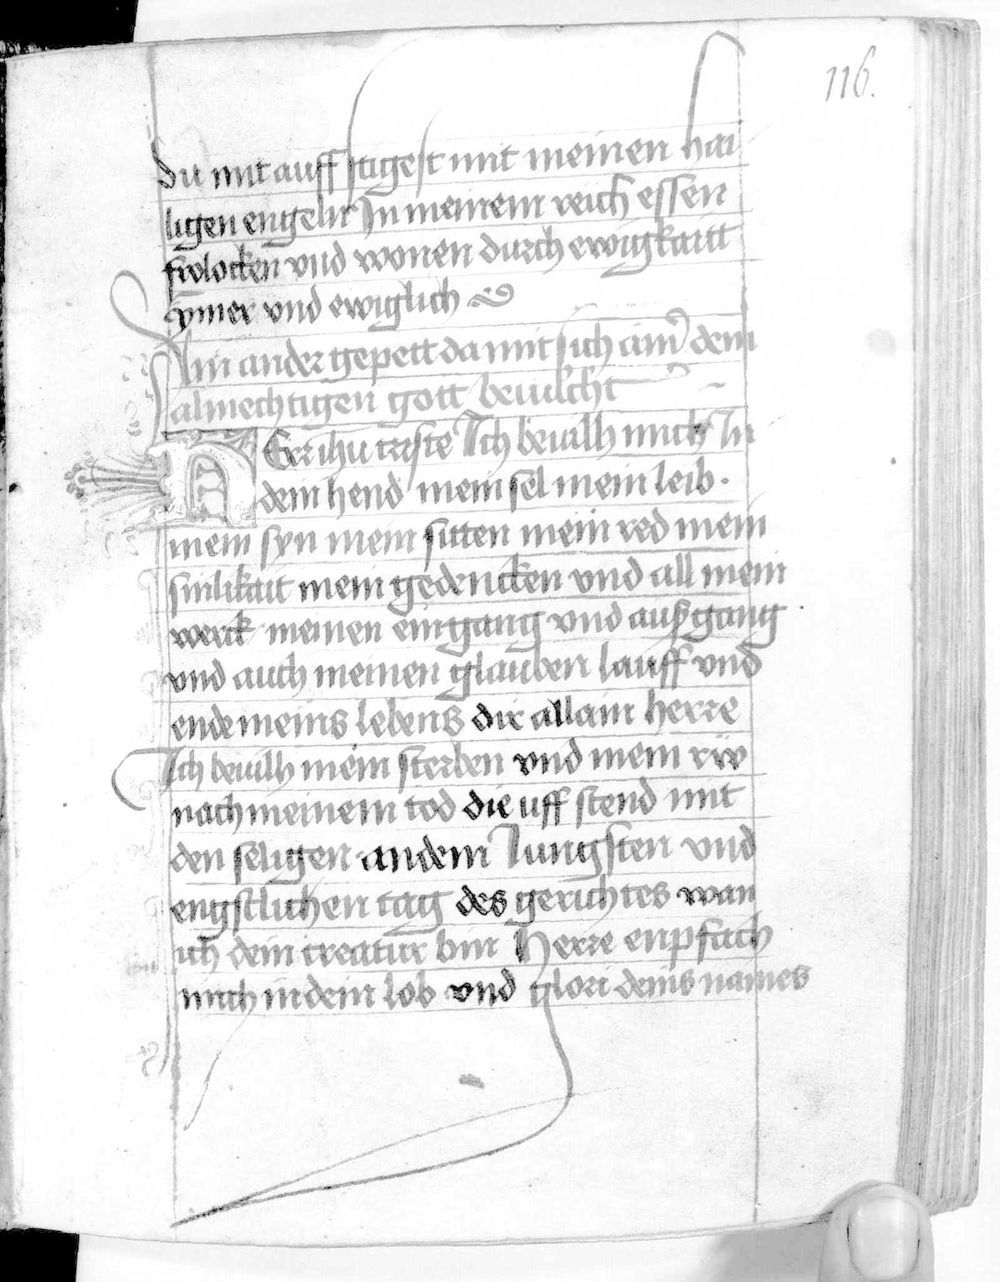 116.
du mit auff stigest mit meinen hai
ligen engeln In meinem reich essen
frolocken vnd wonen durch ewigkaitt
ymer vnd ewiglich
Ain ander gepett da mit sich ain dem
almechtigen gott beuilcht
HErr ihu criste Ich beuilh mich In
dein hend mein sel mein leib.
mein syn mein sitten mein red mein
sinlikait mein gedencken vnd all mein
werck meinen eingang vnd außgang
vnd auch meinen glauben lauff vnd
ende meins lebens dir allain herre
Ich beuilh mein sterben vnd mein rw
nach meinem tod die uff stend mit
den seligen an dem Iungsten vnd
engstlichen tag des gerichtes wan
ich dein creatur bin Herre enpfach
mich in dein lob vnd glori deins names